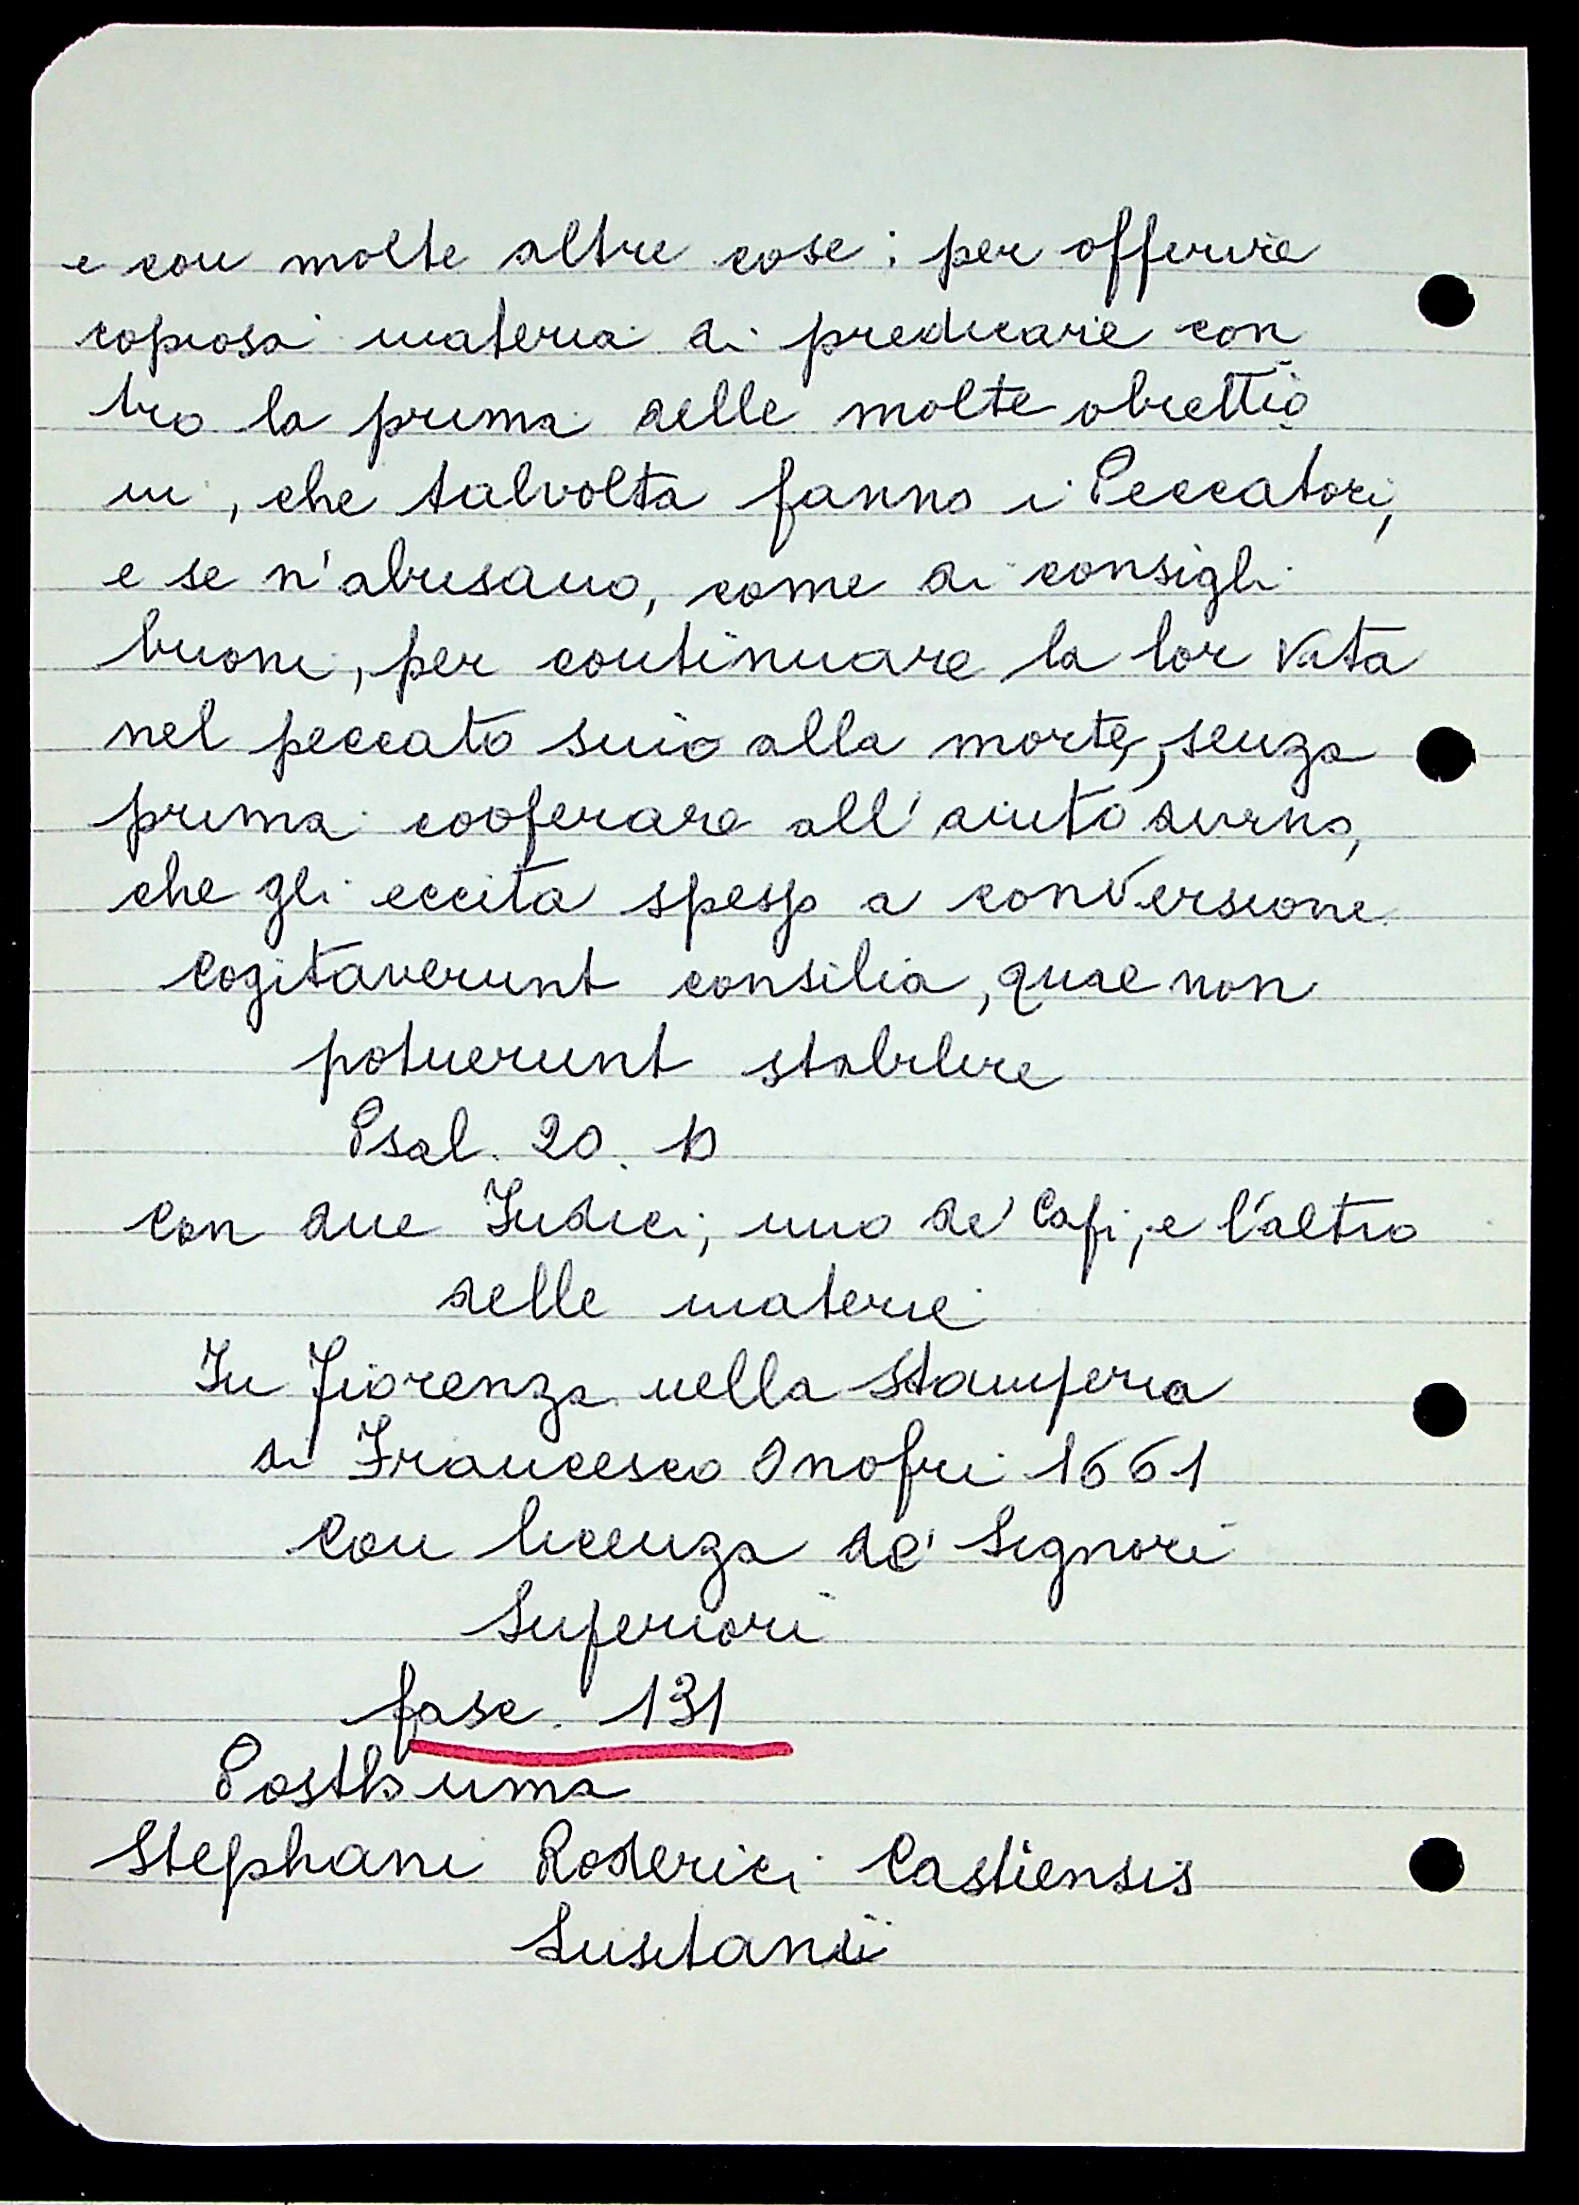 e con molte altre cose: per offerire
copiosa materia di predicare con
tro la prima delle molte obiettio
ni, che talvolta fanno i Peccatori,
e se n'abusano, come di consigli
buoni, per continuare la lor vita
nel peccato sino alla morte, senza
prima cooperare all'aiuto divino,
che gli eccita spesso a conversione
Cogitaverunt consilia, quae non
potuerunt stabilire
Psal. 20. 10
Con due Indici; uno de' Capi, e l'altro
delle materie
In Fiorenza nella Stamperia
di Francesco Onofri 1661
Con licenza de' Signori
Superiori
fasc. 131
Posthuma
Stephani Roderici Castiensis
Lusitanii